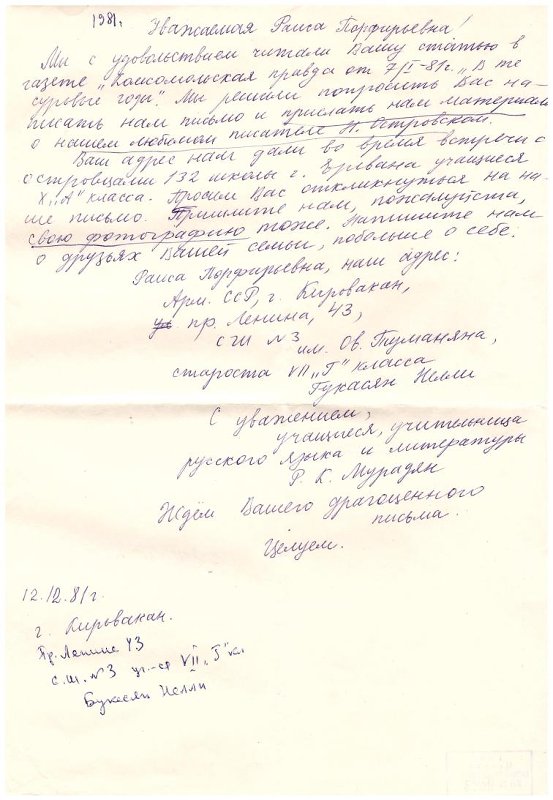 1981г.
Уважаемая Раиса Порфирьевна!
Мы с удовольствием читали Вашу статью в
газете „Комсомольская правда от 7/I-81г. „В те
суровые годы". Мы решили попросить Вас на-
писать нам письмо и прислать нам материал
о нашем любимом писателе Н. Островском.
Ваш адрес нам дали во время встречи с
островцами 132 школы г. Еревана учащиеся
X „А" класса. Просим Вас откликнуться на на-
ше письмо. Пришлите нам, пожалуйста,
свою фотографию тоже. Напишите нам
о друзьях Вашей семьи, побольше о себе.
Раиса Порфирьевна, наш адрес:
Арм. ССР, г. Кировакан,
ул пр. Ленина, 43,
СШ №3 им. Ов. Туманяна,
староста VII „Г" класса
Гукасян Нелли
С уважением,
учащиеся, учительница
русского языка и литературы
Р. К. Мурадян
Ждём Вашего драгоценного
письма.
Целуем.
12.12.81г.
г. Кировакан.
Пр. Ленина 43
с.ш. №3 уч-ся VII „Г" кл.
Гукасян Нелли